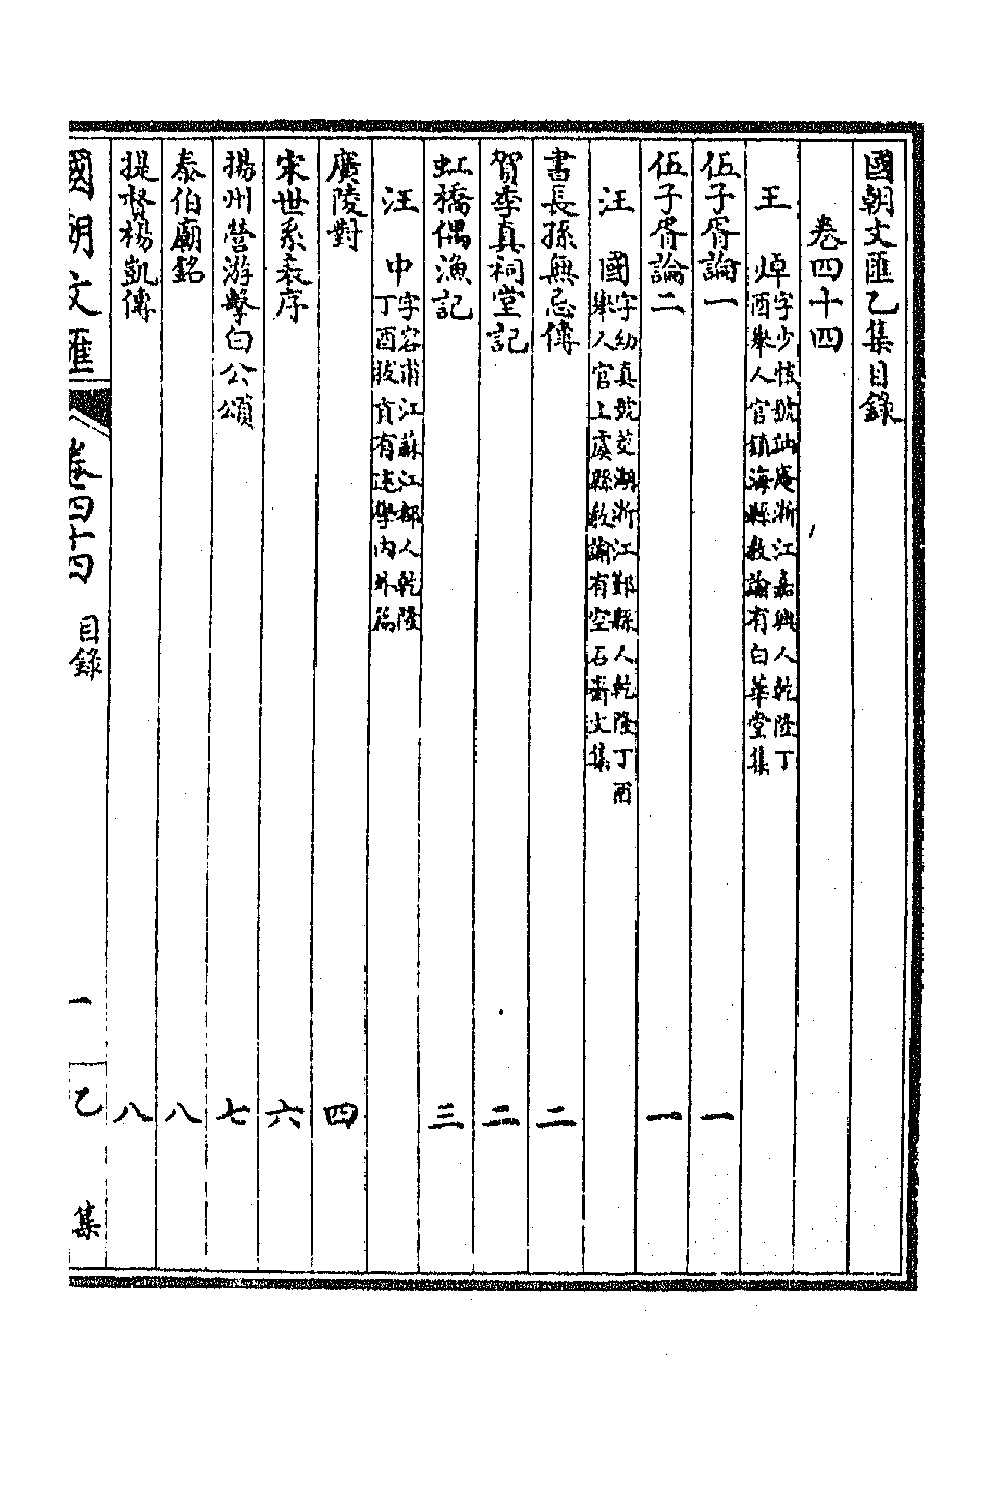 國朝文匯乙集目錄
卷四十四
王焯字少愧號仙庵浙江嘉興人乾隆丁酉舉人官鎮海縣教諭有白華堂集
伍子胥論一 一
伍子胥論二 一
汪國字幼真號茭湖浙江鄞縣人乾隆丁酉舉人官上虞縣教諭有空石齋文集
書長孫無忌傳 二
賀季真祠堂記 二
虹橋偶漁記 三
汪中字容甫江蘇江都人乾隆丁酉拔貢有述學內外篇
廣陵對 四
宋世系表序 六
揚州營游擊白公頌 七
泰伯廟銘 八
提督楊凱傳 八
國朝文匯 卷四十四 目錄 一 乙集